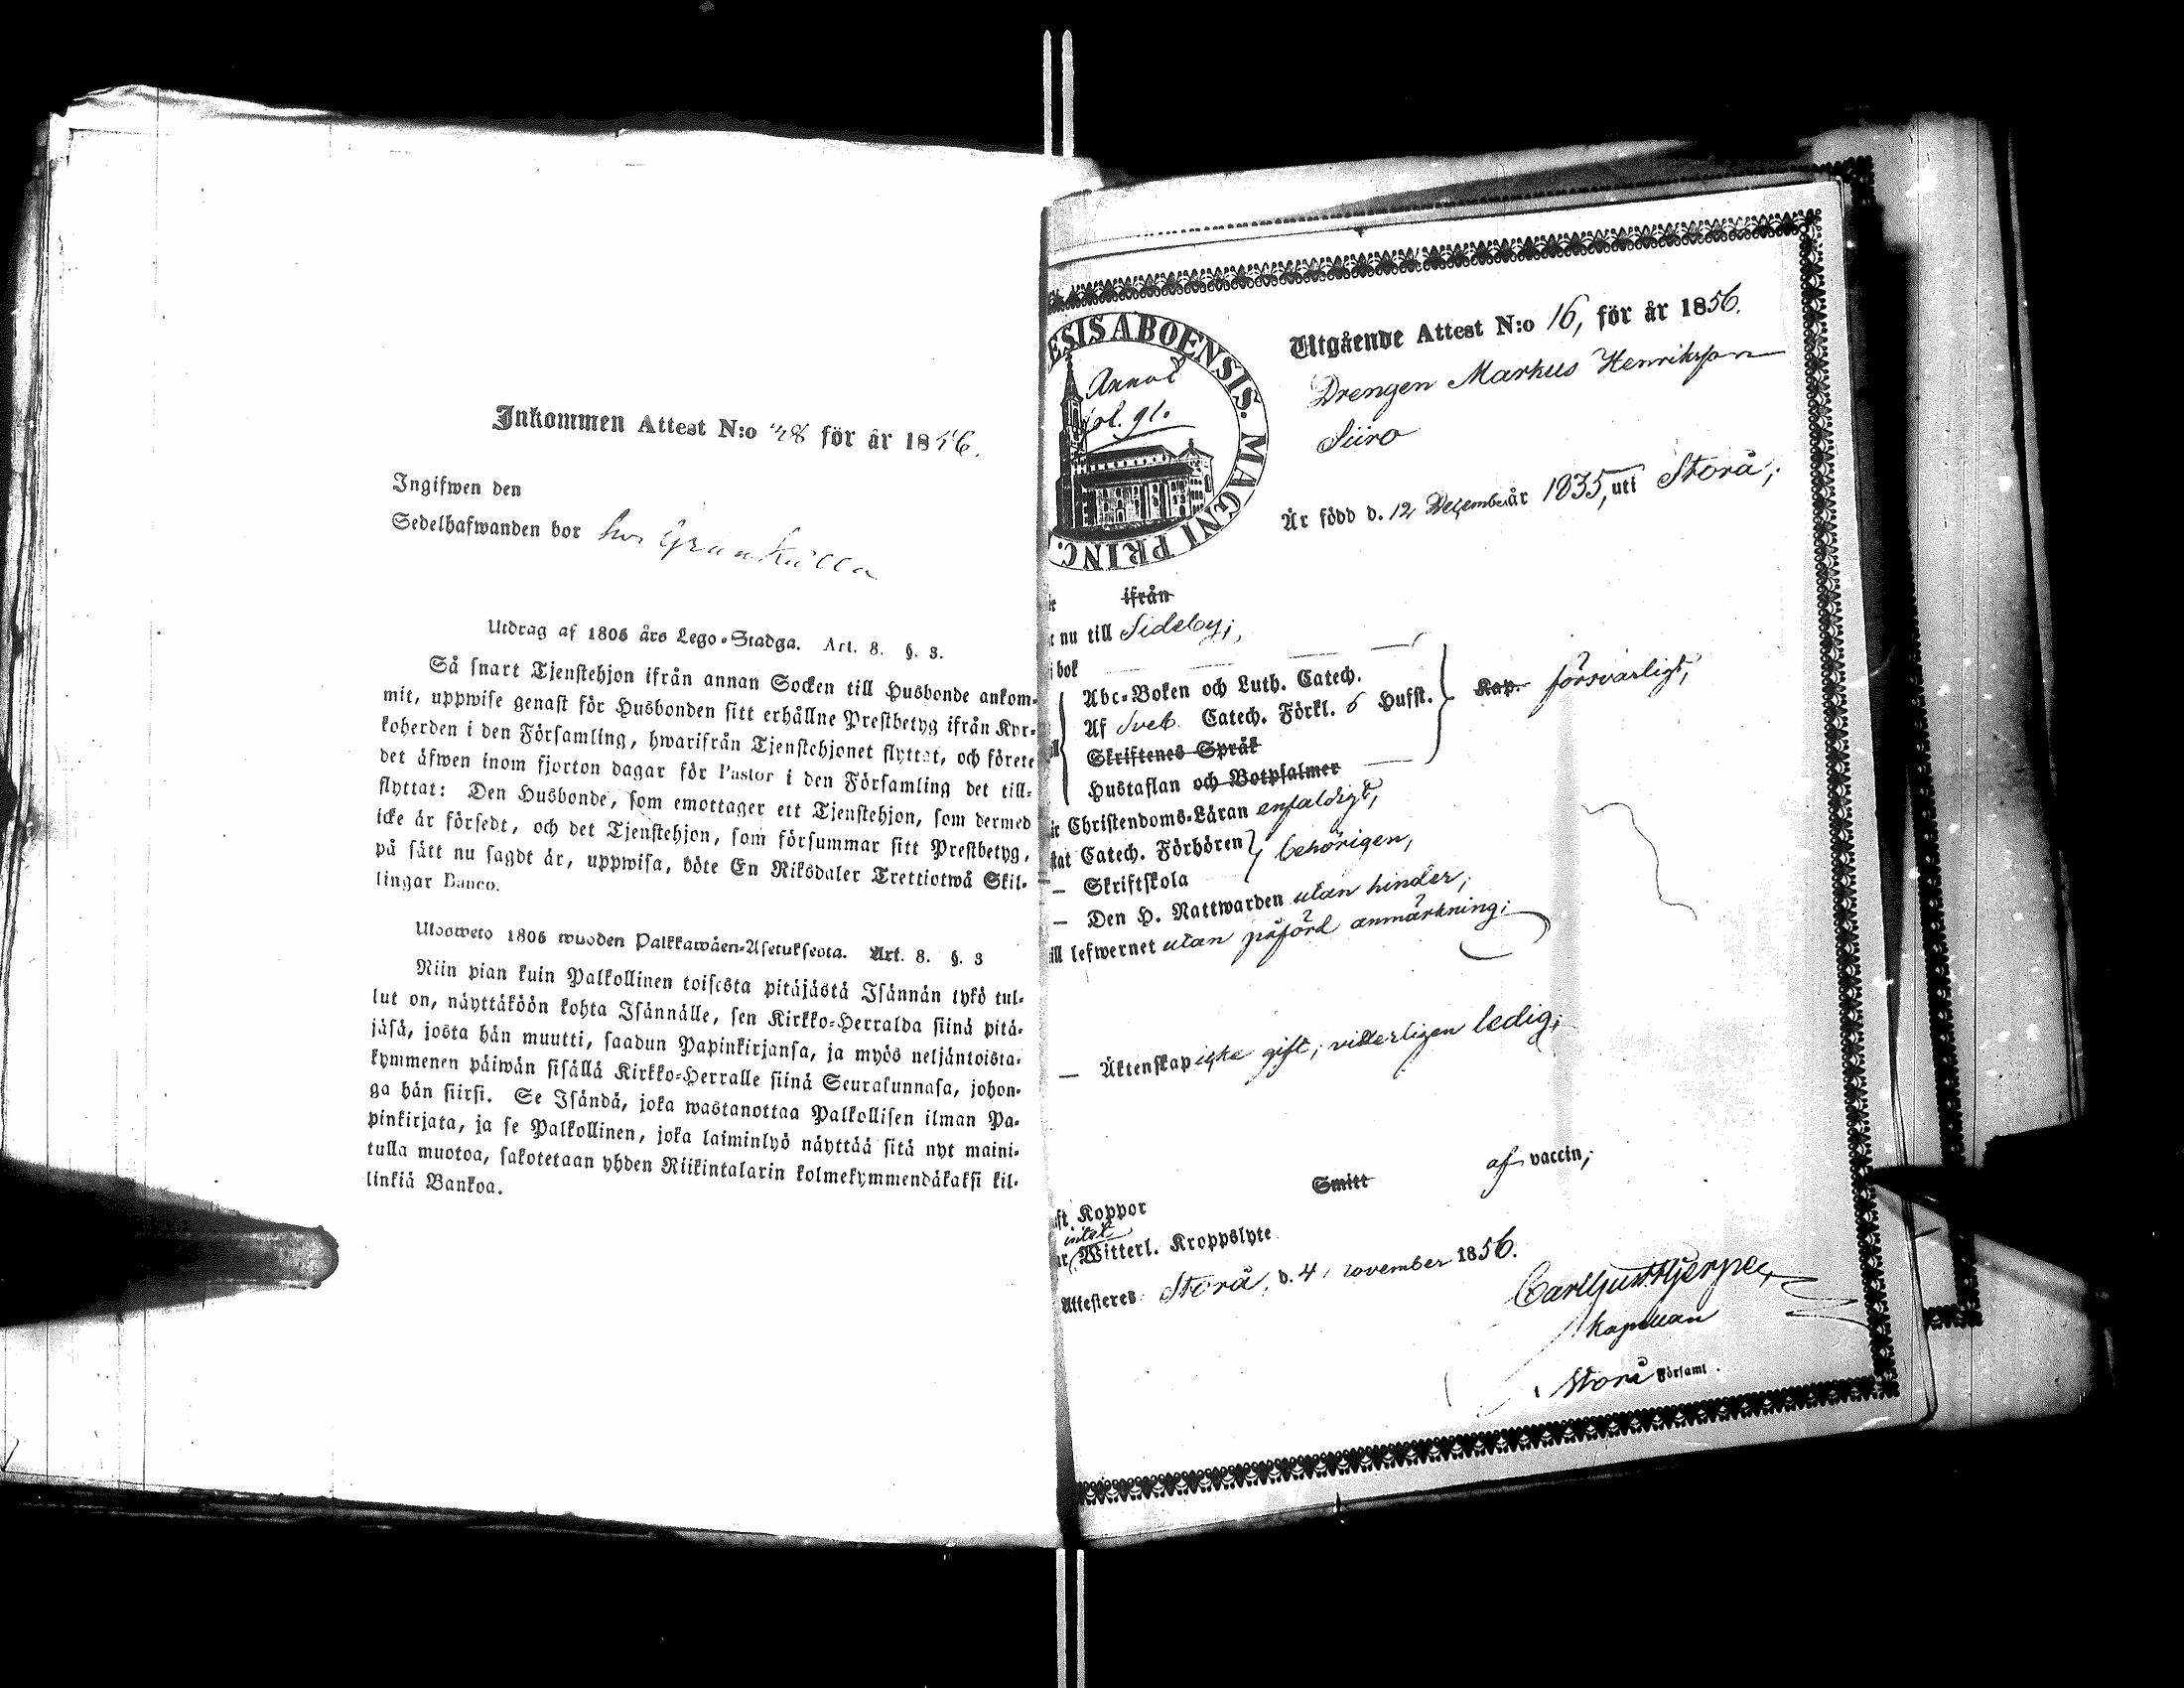 Inkommen Attest N:o 48 för år 1856.
Ingifwen den
Sedelhafwanden bor hos Grankulla
Utdrag af 1805 års Lego-Stadga. Art. 8. §. 3.
Så snart Tjenstehjon ifrån annan Socken till Husbonde ankom-
mit, uppwise genast för Husbonden sitt erhållne Prestbetyg ifrån Kyr-
koherden i den Församling, hwarifrån Tjenstehjonet flyttat, och förete
det äfwen inom fjorton dagar för Pastor i den Församling det till-
flyttat: Den Husbonde, som emottager ett Tjenstehjon, som dermed
icke är försedt, och det Tjenstehjon, som försummar sitt Prestbetyg,
på sätt nu sagdt är, uppwisa, böte En Riksdaler Trettiotwå Skil-
lingar Banco.
Ulosweto 1805 wuoden Palkkawäen-Asetuksesta. Art. 8. §. 3
Niin pian kuin Palkollinen toisesta pitäjästä Isännän tykö tul-
lut on, näyttäköön kohta Isännälle, sen Kirkko-Herralda siinä pitä-
jäsä, josta hän muutti, saadun Papinkirjansa, ja myös neljäntoista-
kymmenen päiwän sisällä Kirkko-Herralle siinä Seurakunnasa, johon-
ga hän siirsi. Se Isändä, joka wastanottaa Palkollisen ilman Pa-
pinkirjata, ja se Palkollinen, joka laiminlyö näyttää sitä nyt maini-
tulla muotoa, sakotetaan yhden Riikintalarin kolmekymmendäkaksi kil-
linkiä Bankoa.
ESIS ABOENSIS. MAGNI PRINC.
fol. 91.
Utgående Attest N:o 16, för år 1856.
Drengen Markus Henriksson
Siiro
Är född d. 12 Dezember år 1835, uti Storå;
ifrån
nu till Sideby;
bok
Abc-Boken och Luth. Catech.
Af Sveb. Catech. Förkl. 6 Hufst. Kap. försvarligt;
Skriftenes Språk
Hustaflan och Botpsalmer
Christendoms-Läran enfaldigt;
Catech. Förhören behörigen,
— Skriftskola
— Den H. Nattwarden utan hinder;
ill lefwernet utan påförd anmärkning;
— Äktenskap icke gift; vitterligen ledig;
Koppor Smitt af vaccin;
intet
Witterl. Kroppslyte
Attesteres Storå, d. 4 november 1856.
Carl Gust. Hjerpe
Kapellan
i Storå Församl.